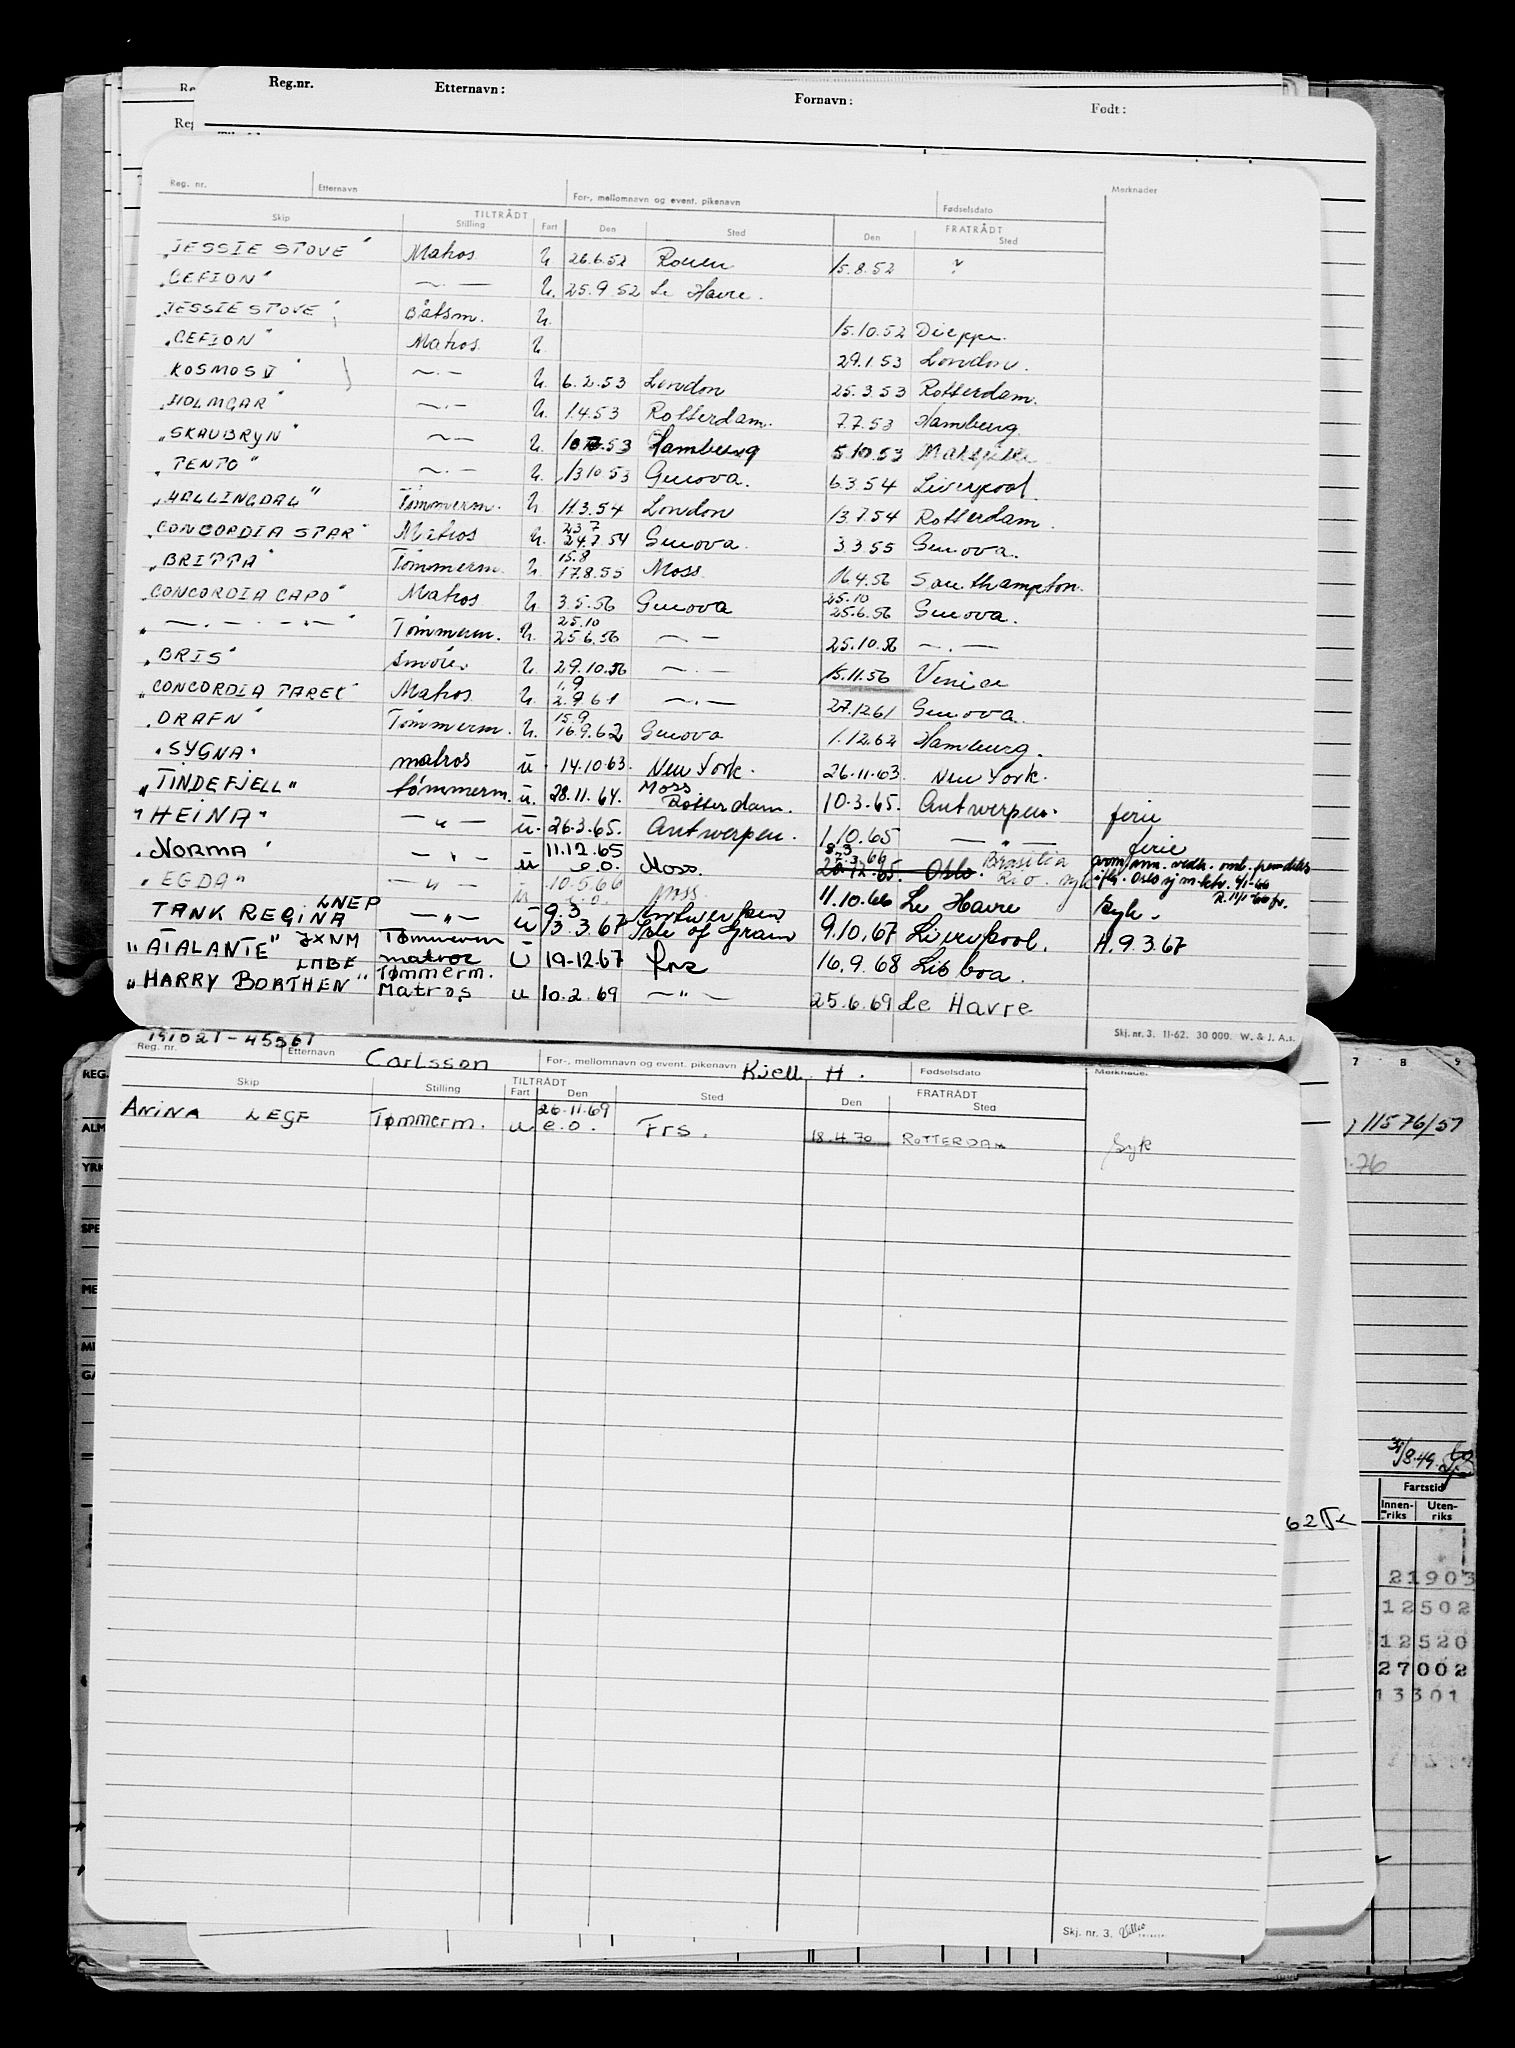 Reg.nr. Etternavn: Fornavn: Født:
Reg. nr. Etternavn For-, mellomnavn og event. pikenavn Fødselsdato Merknader
TILTRÅDT FRATRÅDT
Skip Stilling Fart Den Sted Den Sted
"JESSIE STOVE" Matros U. 26.6.52 Rouen 15.8.52 ?
"GEFION" —.— U. 25.9.52 Le Havre.
"JESSIE STOVE" Båtsm. U. 15.10.52 Dieppe.
"GEFION" Matros U. 29.1.53 London.
KOSMOS V" —.— U. 6.2.53 London 25.3.53 Rotterdam.
"HOLMGAR" —.— U. 1.4.53 Rotterdam. 7.7.53 Hamburg
"SKAUBRYN" —.— U. 53 Hamburg 5.10.53
"TENTO" —.— U. 13.10.53 Genova. 6.3.54 Liverpool.
"HALLINGDAL" Tømmerm. U. 11.3.54 London 13.7.54 Rotterdam.
"CONCORDIA STAR" Matros U. 23.7 24.7.54 Genova. 3.3.55 Genova.
"BRITTA" Tømmerm. U. 15.8 17.8.55 Moss. 16.4.56 Southampton.
"CONCORDIA CAPO" Matros U. 3.5.56 Genova 25.10 25.6.56 Genova.
"—.—.—.—" Tømmerm. U. 25.10 25.6.56 —.— 25.10.56 —.—
"BRIS" Smører U. 29.10.56 —.— 15.11.56 Venice
"CONCORDIA TAREK" Matros U. 1.9 2.9.61 —.— 27.12.61 Genova.
"DRAFN" Tømmerm. U. 15.9 16.9.62 Genova 1.12.62 Hamburg.
"SYGNA" matros u. 14.10.63. New York. 26.11.63. New York.
"TINDEFJELL" tømmerm. u. 28.11.64. Moss Rotterdam. 10.3.65. Antwerpen. ferie
"HEINA" —"— u. 26.3.65. Antwerpen. 1.10.65 —"— ferie
"NORMA" —"— u 11.12.65 e.o. Moss. Oslo. Brasilia
Rio. syk
"EGDA" —"— u 10.5.66 e.o. Moss 11.10.66 Le Havre Syk.
TANK REGINA LNEP —"— u 9.3 13.3.67 Antwerpen Isle of Grain 9.10.67 Liverpool. A. 9.3.67
"ATALANTE" JXNM Tømmerm matros U 19-12.67 Frs 16.9.68 Lisboa
"HARRY BORTHEN" LMBE Tømmerm. Matros u 10.2.69 —"— 25.6.69 Le Havre
Skj. nr. 3. 11-62. 30 000. W. & J. A.s.
Reg. nr. Etternavn Carlsson For-, mellomnavn og event. pikenavn Kjell H. Fødselsdato
TILTRÅDT FRATRÅDT
Skip Stilling Fart Den Sted Den Sted
ANINA LEGF Tømmerm. u 26.11.69 e.o. Frs. 18.4.70 ROTTERDAM Syk
Skj. nr. 3.
REG.
ALM
YRK
SPE
ME
MI
GA
7 8 9
11576/57
31/8.49
Fartstid
Innen-riks Uten-riks
62
21903
12502
12520
27002
13301